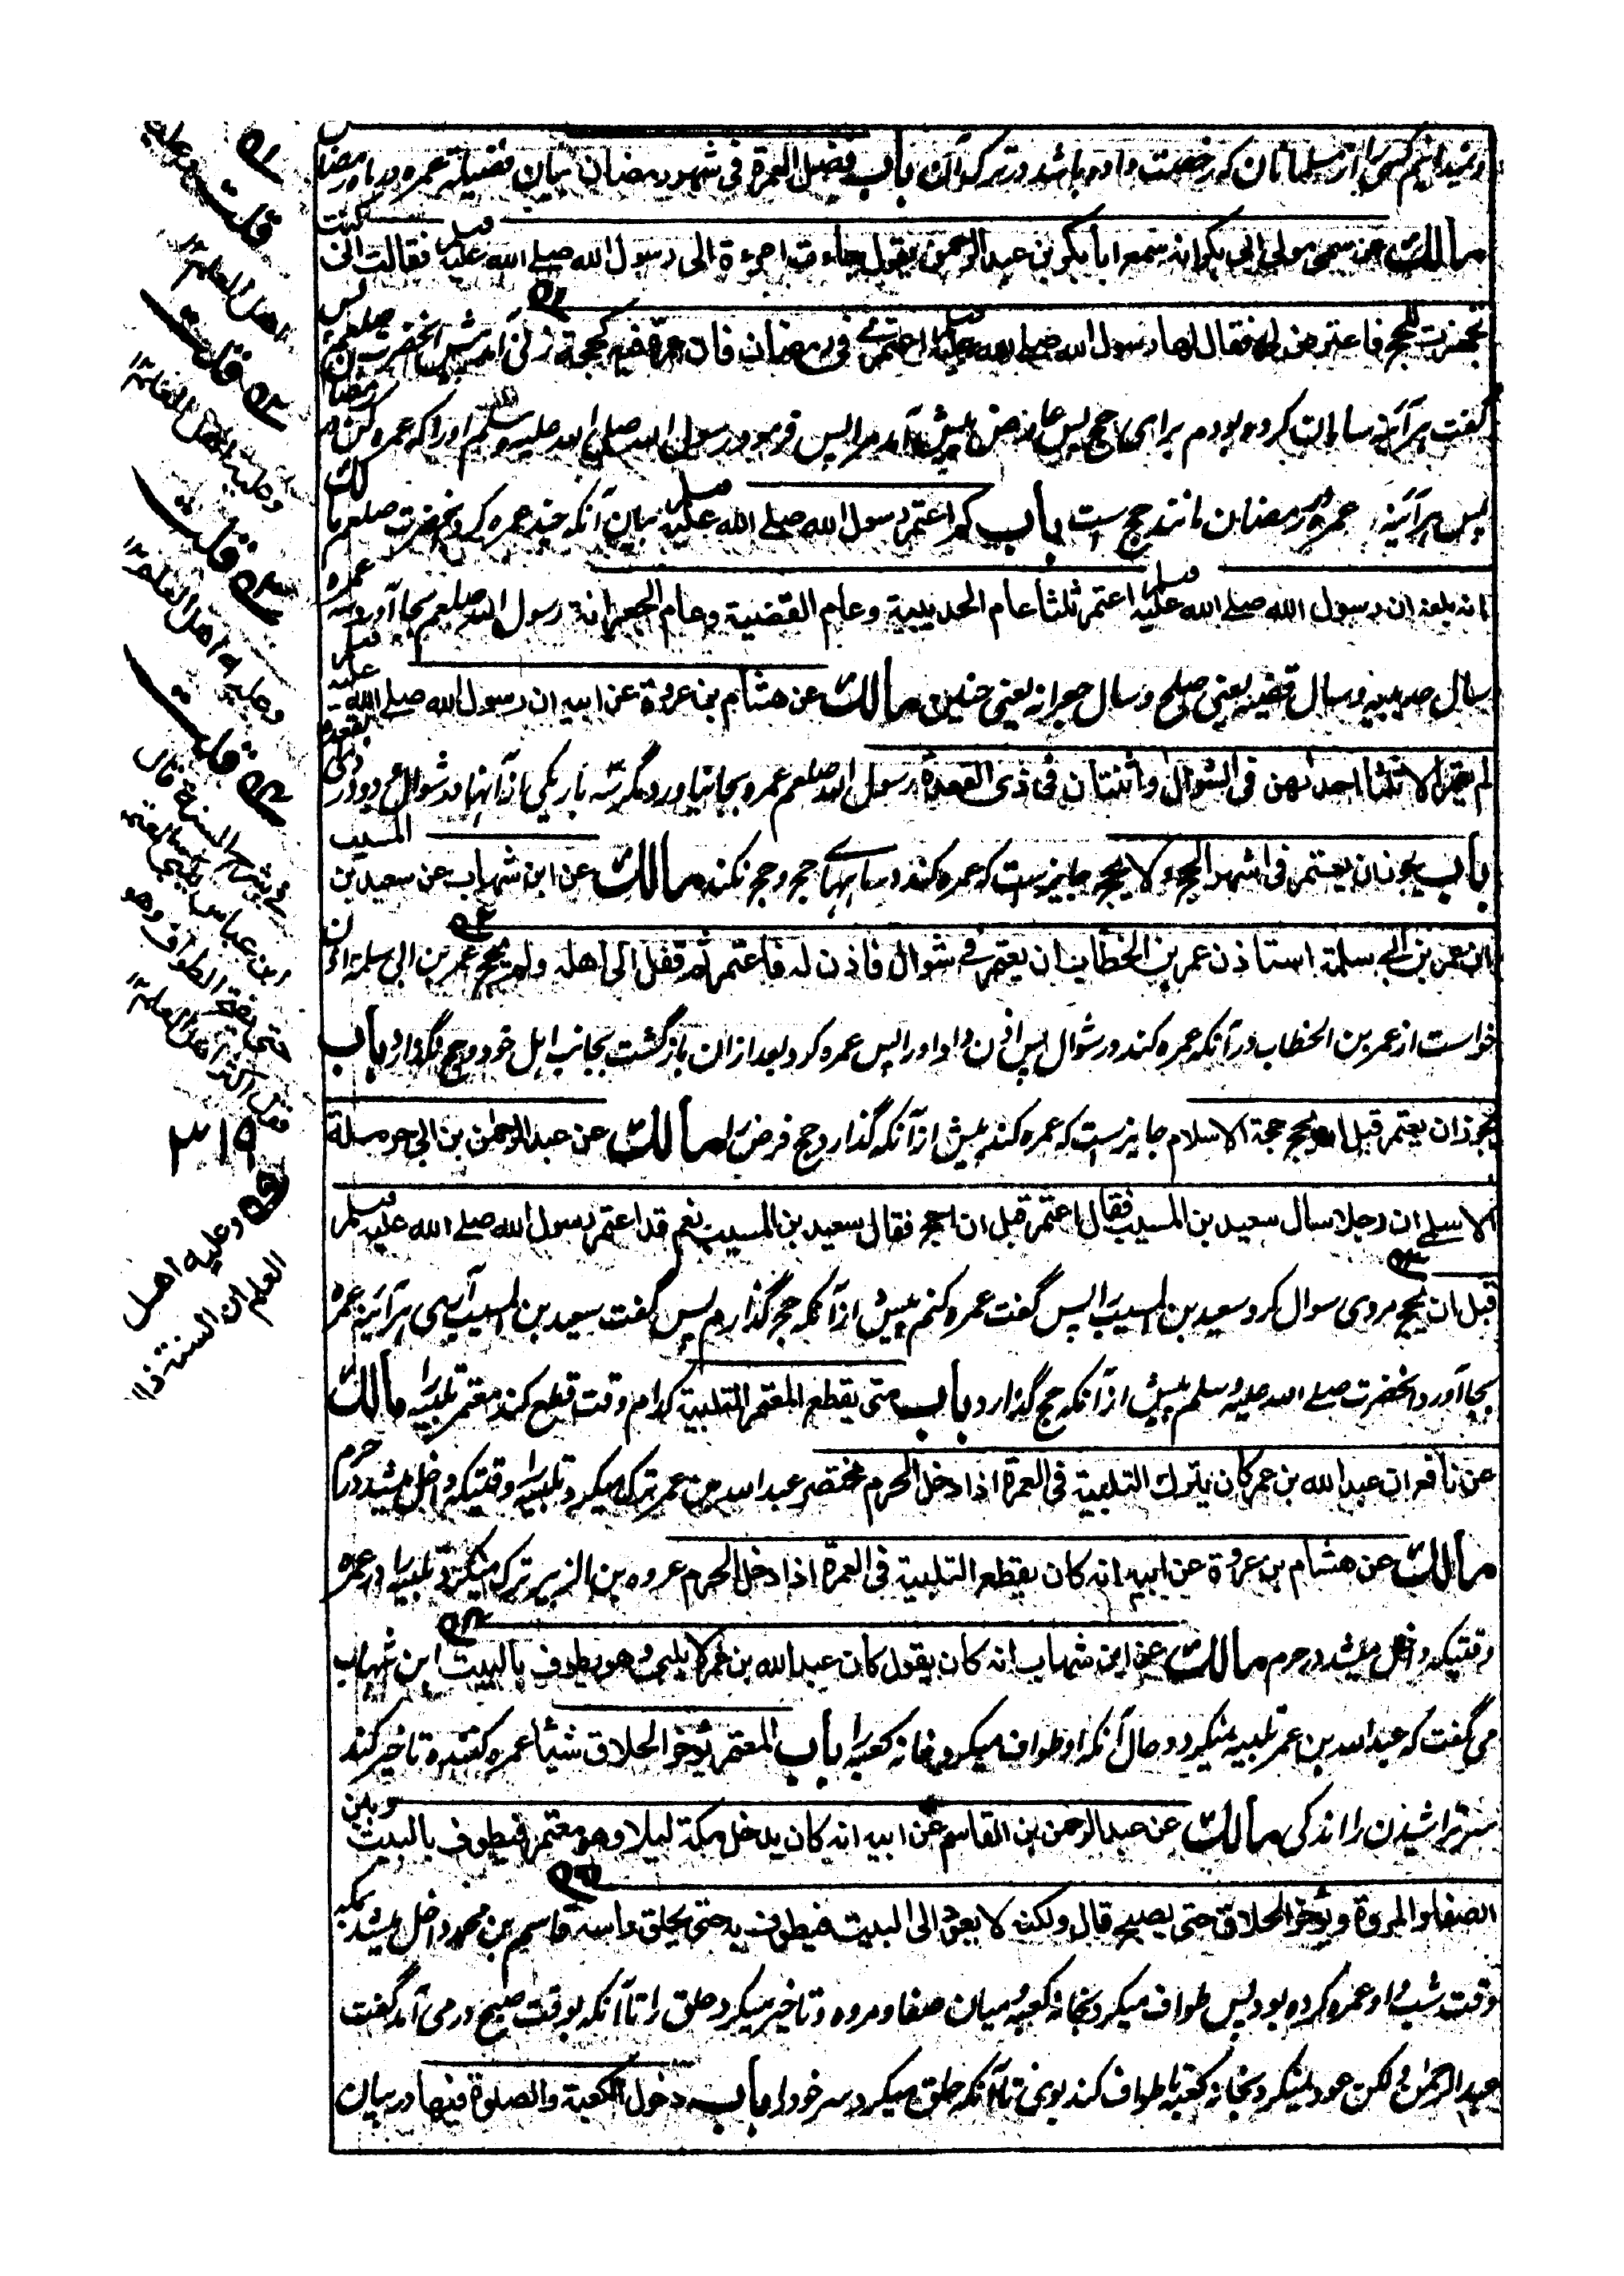 ونمیدانیم کسی را از مسلمانان که رخصت داده باشد در ترک آن باب فضل العمرة فی شهر رمضان بیان فضیلة عمره در ماه رمضان
مالك عن سمی مولی ابی بکر انه سمع ابا بکر بن عبد الرحمن یقول جاءت امرءة الی رسول الله صلے الله علیه وسلم فقالت انی کنت
تجهزت للحج فاعترض لی فقال لها رسول الله صلے الله علیه وسلم اعتمری فی رمضان فان عمرة فیه کحجة زنی آمد پیش آنحضرت صلعم پس
گفت هر آئینه سامان کرده بودم برای حج پس عارض پیش آمد مرا پس فرمود رسول الله صلی الله علیه وسلم او را که عمره کن در رمضان
پس هر آئینه عمره در رمضان مانند حج است باب کم اعتمر رسول الله صلے الله علیه وسلم بیان آنکه چند عمره کرد آنحضرت صلعم مالك
انه بلغه ان رسول الله صلے الله علیه وسلم اعتمر ثلثا عام الحدیبیة وعام القضیة وعام الجعرانة رسول الله صلعم بجا آورد سه عمره
سال حدیبیه وسال قضیه یعنی صلح وسال جعرانه یعنی حنین مالك عن هشام بن عروة عن ابیه ان رسول الله صلے الله علیه وسلم
لم یعتمر الا ثلثا احدٰهن فی الشوال واثنتان فی ذی القعدة رسول الله صلعم عمره بجا نیاورد مگر سه بار یکی از آنها در شوال و دو در ذی القعده
باب یجوز ان یعتمر فی اشهر الحج ولا یحج جایز است که عمره کند در ماههای حج وحج نکند مالك عن ابن شهاب عن سعید بن المسیب
ان عمر بن ابی سلمة استاذن عمر بن الخطاب ان یعتمر فی شوال فاذن له فاعتمر ثم قفل الی اهله ولم یحج عمر بن ابی سلمه اذن
خواست از عمر بن الخطاب در آنکه عمره کند در شوال پس اذن داد او را پس عمره کرد بعد از ان بازگشت بجانب اهل خود وحج نگذارد باب
یجوز ان یعتمر قبل ان یحج حجة الاسلام جایز است که عمره کند پیش از آنکه گذارد حج فرض را مالك عن عبد الرحمن بن ابی حرملة
الاسلے ان رجلا سال سعید بن المسیب فقال اعتمر قبل ان احج فقال سعید بن المسیب نعم قد اعتمر رسول الله صلے الله علیه وسلم
قبل ان یحج مردی سوال کرد سعید بن المسیب را پس گفت عمره کنم پیش از آنکه حج گذارم پس گفت سعید بن المسیب آری هر آئینه عمره
بجا آورد آنحضرت صلے الله علیه وسلم پیش از آنکه حج گذارد باب متی یقطع المعتمر التلبیة کدام وقت قطع کند معتمر تلبیه را مالك
عن نافع ان عبد الله بن عمر کان یترك التلبیة فی العمرة اذا دخل الحرم مختصر عبد الله بن عمر ترک میکرد تلبیه را وقتیکه داخل میشد در حرم
مالك عن هشام بن عروة عن ابیه انه کان یقطع التلبیة فی العمرة اذا دخل الحرم عروه بن الزبیر ترک میکرد تلبیه را در عمره
وقتیکه داخل میشد در حرم مالك عن ابن شهاب انه کان یقول کان عبد الله بن عمر لا یلبی وهو یطوف بالبیت ابن شهاب
می گفت که عبد الله بن عمر تلبیه نمیکرد در حال آنکه او طواف میکرد خانه کعبه را باب المعتمر یؤخر الحلاق شیئا عمره کننده تاخیر کند
سر تراشیدن را اندکی مالك عن عبد الرحمن بن القاسم عن ابیه انه کان یدخل مکة لیلا وهو معتمر فیطوف بالبیت وبین
الصفا والمروة ویؤخر الحلاق حتی یصبح قال ولکنه لا یعود الی البیت فیطوف به حتی یحلق راسه قاسم بن محمد داخل میشد بمکه
وقت شب و او عمره کرده بود پس طواف میکرد بخانه کعبه و میان صفا و مروه و تاخیر میکرد حلق را تا آنکه بوقت صبح در می آمد گفت
عبد الرحمن و لکن عود نمیکرد بخانه کعبه تا طواف کند بوی تا آنکه حلق میکرد سر خود را باب دخول الکعبة والصلوة فیها در بیان
قلت وعلیه
اهل العلم ١٢
قلت
وعلیه اهل العلم ١٢
قلت
وعلیه اهل العلم ١٢
قلت
فی شرح السنة قال
ابن عباس
حتی یفتتح الطواف وهو
قول اکثر اهل العلم ١٢
٣١٩
وعلیه اهل
العلم ان السنة